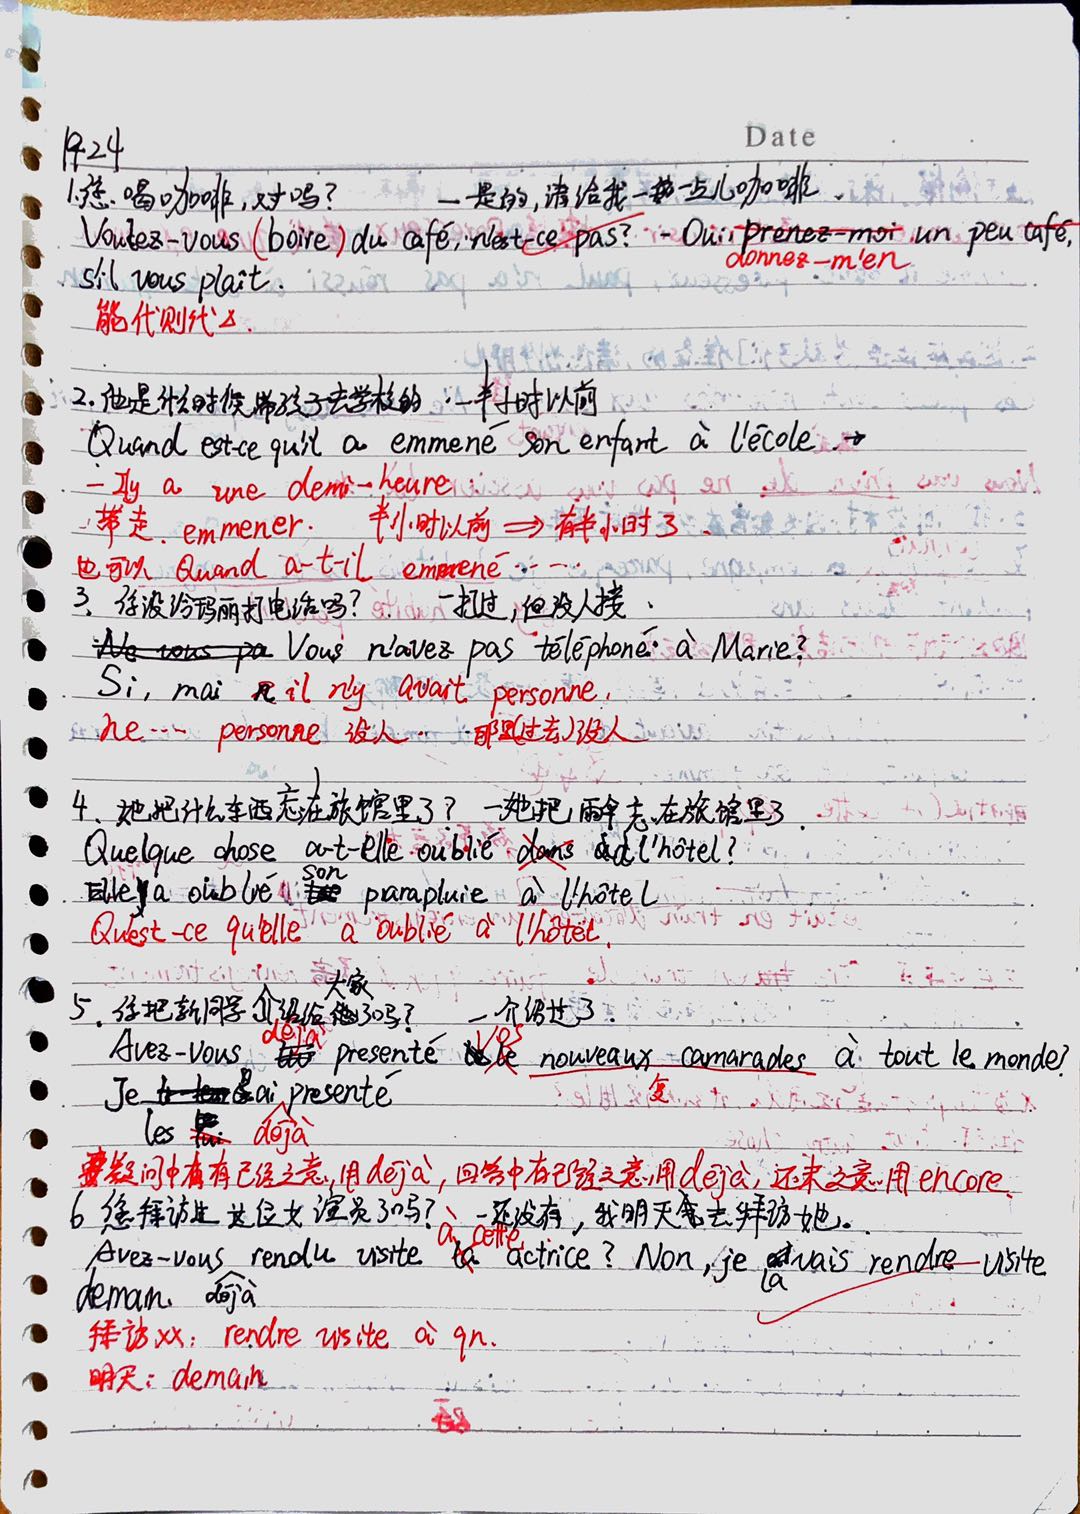 Date
P.24
1.您喝咖啡,对吗? 一是的,请给我一点儿咖啡.
Voulez-vous (boire) du café, n'est-ce pas? - Oui, prenez-moi un peu café,
donnez-m'en
s'il vous plaît.
能代则代
2.他是什么时候带孩子去学校的 一半小时以前
Quand est-ce qu'il a emmené son enfant à l'école →
- Il y a une demi-heure.
带走. emmener. 半小时以前 ⇒ 有半小时了.
也可以 Quand a-t-il emmené ……
3. 你没给玛丽打电话吗? 一打过,但没人接.
Ne vous pa Vous n'avez pas téléphoné à Marie?
Si, mai il n'y avait personne.
ne … personne 没人 … 那里(过去)没人
4. 她把什么东西忘在旅馆里了? 一她把雨伞忘在旅馆里了.
Quelque chose a-t-elle oublié dans à l'hôtel?
son
Elle a oublié parapluie à l'hôtel
Qu'est-ce qu'elle a oublié à l'hôtel.
大家
5. 你把新同学介绍给了吗? 一介绍过了.
déjà vos
Avez-vous presenté le nouveaux camarades à tout le monde?
复
Je ai presenté
les déjà
疑问中有已经之意,用déjà, 回答中有已经之意,用déjà, 还未之意.用encore.
6 您拜访这位女演员了吗? 一还没有,我明天去拜访她。
à cette
Avez-vous rendu visite la actrice? Non, je vais rendre visite
la
demain. déjà
拜访xx: rendre visite à qn.
明天: demain